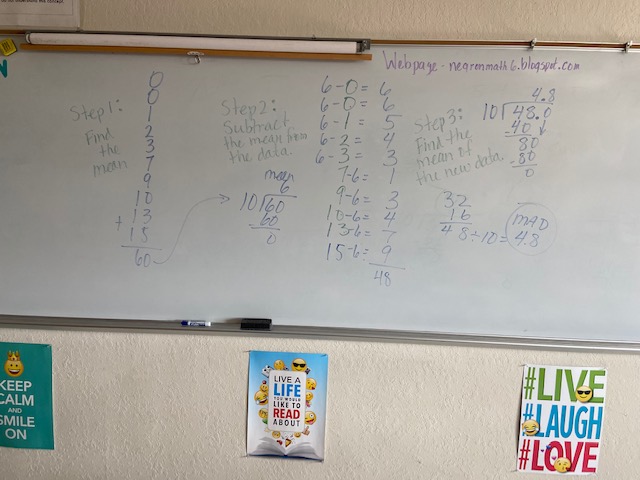 Webpage - negronmath6.blogspot.com
Step 1:
Find
the
mean
0
0
1
2
3
7
9
10
13
+ 15
60
Step 2:
Subtract
the mean from
the data.
mean
6
10)60
60
0
6-0= 6
6-0= 6
6-1= 5
6-2= 4
6-3= 3
7-6= 1
9-6= 3
10-6= 4
13-6= 7
15-6= 9
48
Step 3:
Find the
mean of
the new data.
4.8
10)48.0
40
80
-80
0
32
16
48÷10=
MAD
4.8
KEEP
CALM
AND
SMILE
ON
LIVE A
LIFE
YOU WOULD
LIKE TO
READ
ABOUT
#LIVE
#LAUGH
#LOVE